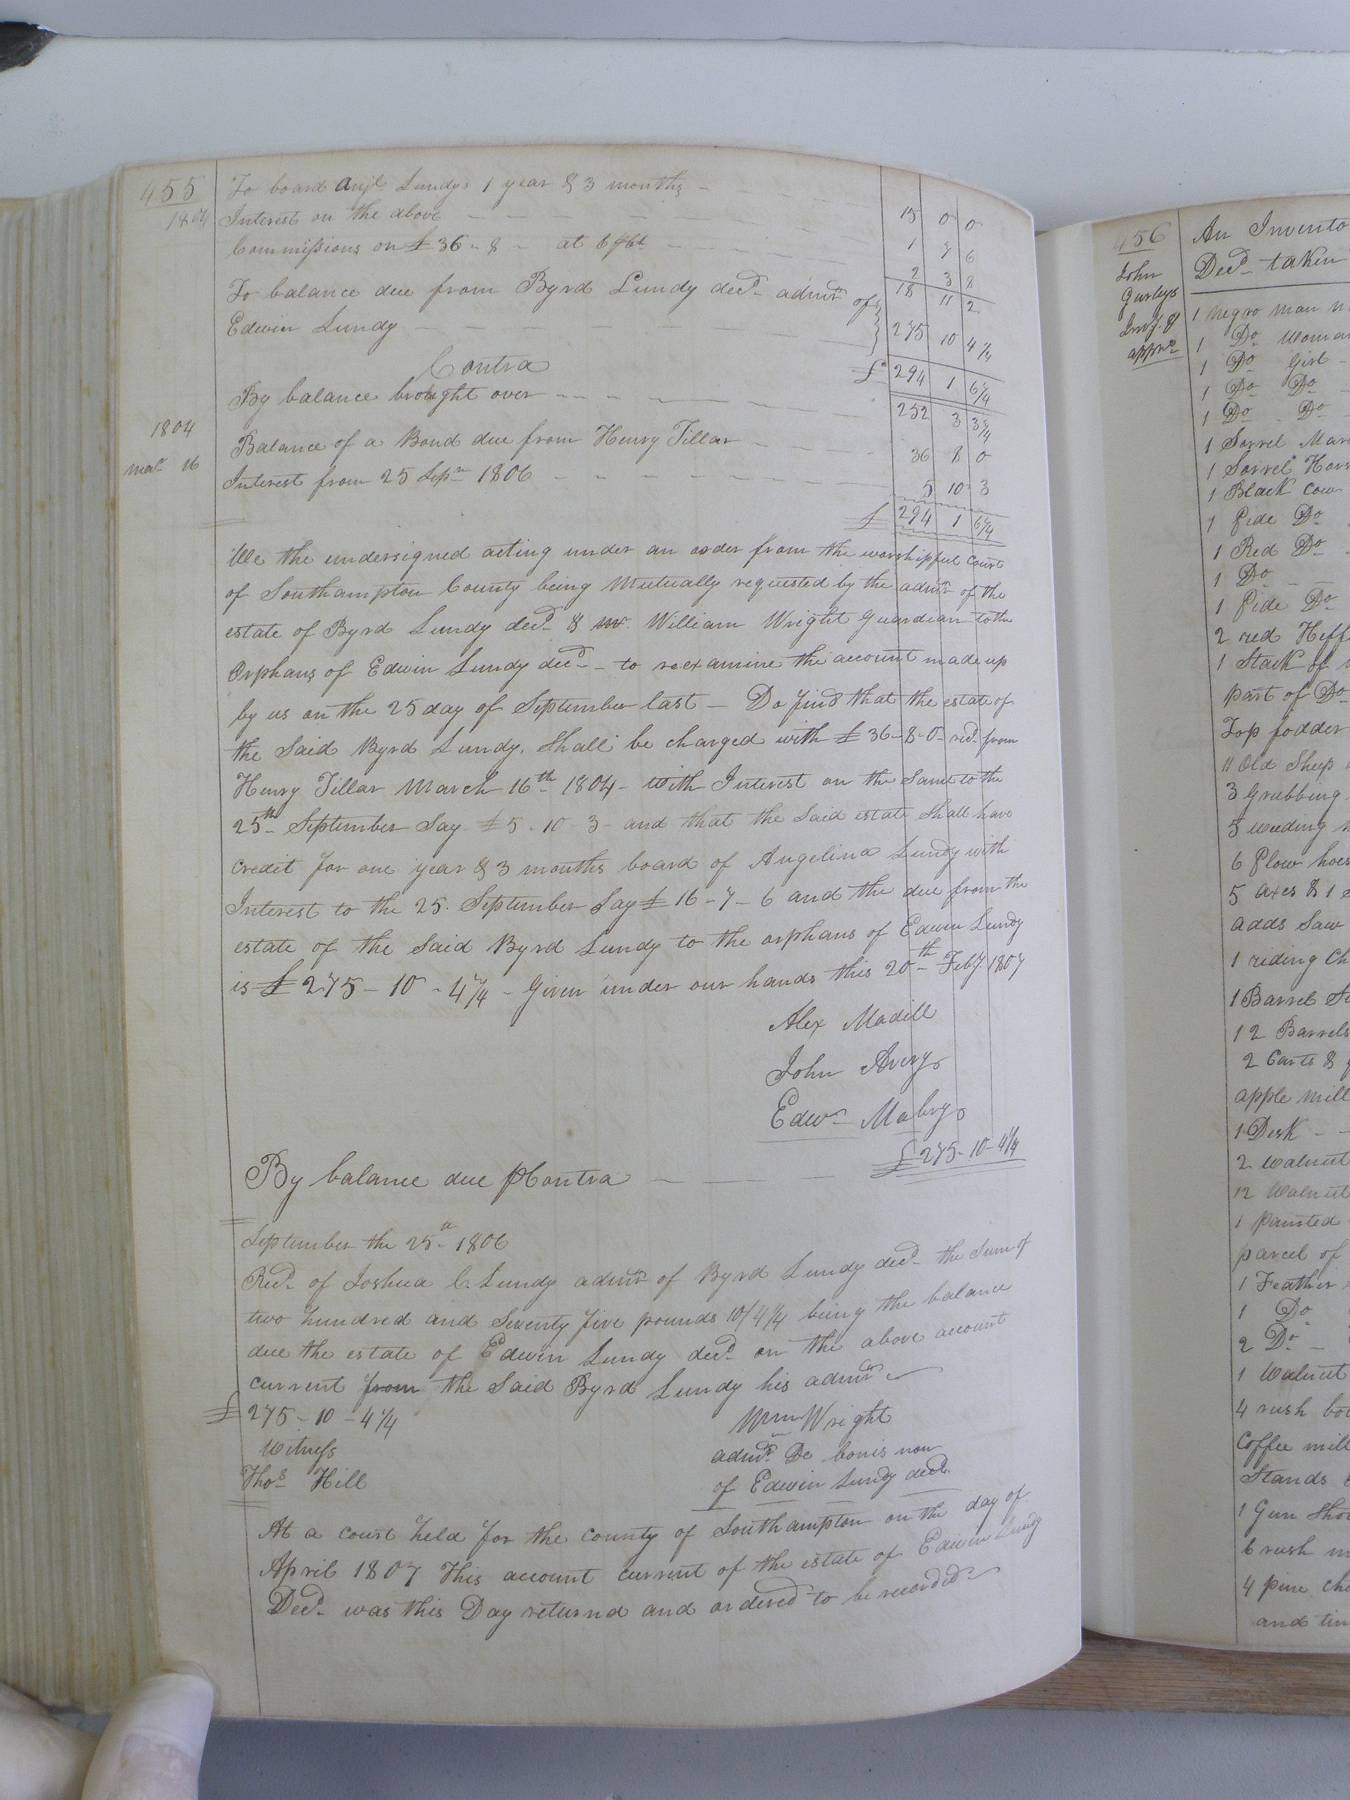 455 To board Anjl Lundys 1 year & 3 months 15 0 0
1804 Interest on the above 1 7 6
Commissions on £36 - 8 - at 6 pct 2 3 8
18 11 2
To balance due from Byrd Lundy decd admr of
Edwin Lundy 275 10 4 1/4
£ 294 1 6 1/4
Contra
By balance brought over 252 3 3 1/4
1804
Balance of a Bond due from Henry Tillar 36 8 0
mar 16
Interest from 25 Sepr 1806 5 10 3
£ 294 1 6 1/4
We the undersigned acting under an order from the worshipful Court
of Southampton County being Mutually requested by the admr of the
estate of Byrd Lundy decd & mr William Wright Guardian to the
Orphans of Edwin Lundy decd - to reexamine the account made up
by us on the 25 day of September last - Do find that the estate of
the Said Byrd Lundy, Shall be charged with £36-8-0 recd from
Henry Tillar March 16th 1804 - with Interest on the Same to the
25th September Say £5-10-3 - and that the said estate Shall have
credit for one year & 3 months board of Angelina Lundy with
Interest to the 25 September Say £16-7-6 and the due from the
estate of the Said Byrd Lundy to the orphans of Edwin Lundy
is £275-10-4 1/4 - Given under our hands this 20th Feby 1807
Alex Madill
John Avery
Edwn Mabry
£275-10-4 1/4
By balance due p Contra
September the 25th 1806
Recd of Joshua C. Lundy admr of Byrd Lundy decd the Sum of
two hundred and Seventy five pounds 10/4 1/4 being the balance
due the estate of Edwin Lundy decd on the above account
current from the Said Byrd Lundy his admr
£275-10-4 1/4
Wm Wright
Witness
admr De bonis non
Thos Hill
of Edwin Lundy decd
At a court held for the county of Southampton on the day of
April 1807 This account current of the estate of Edwin Lundy
Decd was this Day returnd and ordered to be recorded
456
An Invento
Decd taken
John
Gurleys
Invy &
appmt
1 negro man
1 Do Woman
1 Do Girl
1 Do Do
1 Do Do
1 Sorrel Mare
1 Sorrel Hors
1 Black Cow
1 Pide Do
1 Red Do
1 Do
1 Pide Do
2 red Heff
1 Stack of
part of Do
Top fodder
11 Old Sheep
3 Grubbing
5 weeding
6 Plow hoes
5 axes & 1
adds Saw
1 riding Ch
1 Barrel
12 Barrels
2 Carts &
apple mill
1 Desk
2 Walnut
12 Walnut
1 painted
parcel of
1 Feather
1 Do
2 Do
1 Walnut
4 rush bot
Coffee mill
Stands
1 Gun Shot
6 rush
4 pine che
and tin